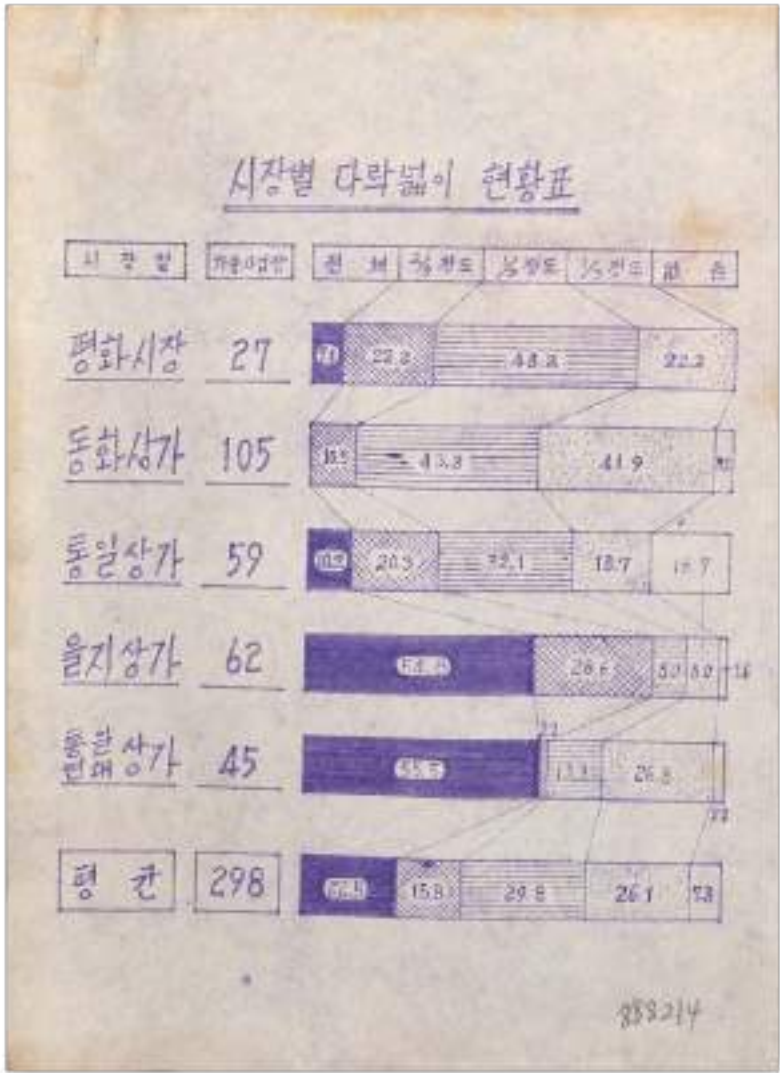 시장별 다락넓이 현황표
시장별 작업장 전체 2/3정도 1/2정도 1/3정도 없음
평화시장 27 22.2 48.2 22.2
동화상가 105 43.8 41.9
통일상가 59 20.3 32.1 18.7 18.7
을지상가 62 8.0 8.0 1.6
통일 상가 45 55.5 13.3 26.8 2.2
평균 298 15.8 29.8 26.1 7.3
888214